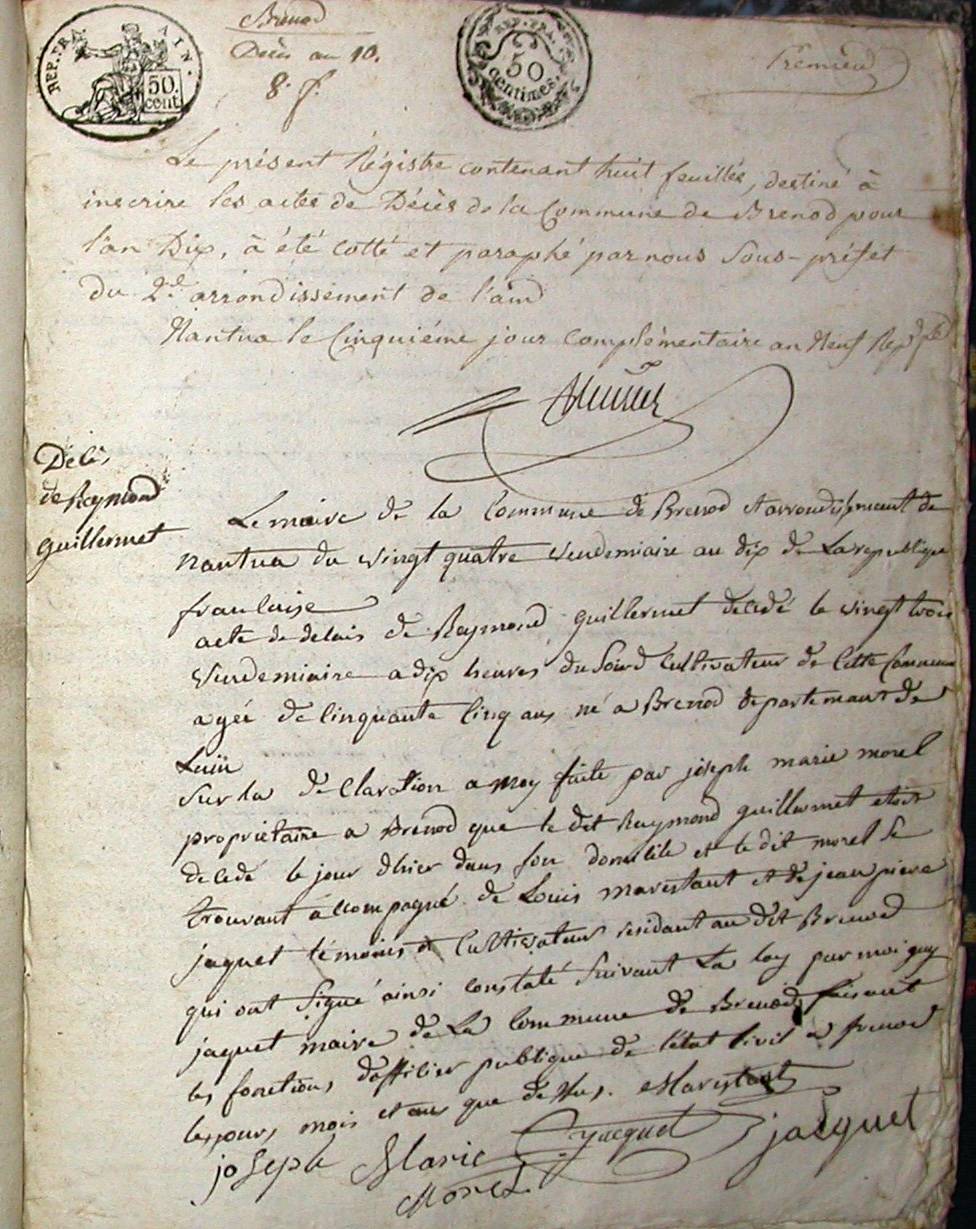 REP. FRA. AIN.
50.
cent.
Brénod
Décès an 10.
8. f.
REP. FRA.
50
centimes.
Premier
Le présent Régistre contenant huit feuilles, destiné à
inscrire les actes de Décès de la Commune de Brenod pour
l'an Dix, à été cotté et paraphé par nous Sous-préfet
du 2.d arrondissement de l'ain
Nantua le Cinquiéme jour complémentaire an Neuf
Decès
de Reymond
Guillermet
Le maire de la Commune de Brenod et arrondissement de
nantua du vingt quatre vendemiaire an dix de La republique
francaise
acte de deces de Raymond guillermet decedé le vingt trois
vendemiaire a dix heures du soir Cultivateur de cette Commune
agée de cinquante cinq ans né a Brenod departemant de
Lain
sur la de Claration a moy faite par joseph marie morel
proprietaire a Brenod que le dit Raymond guillermet etoit
decedé le jour dhier dans son domicile et le dit morel se
trouvant accompagné de Louis marestant et de jean piere
jaquet témoins et Cultivateur residant au dit Brenod
qui ont signé ainsi constaté suivant La loy par moi guy
jaquet maire de La Commune de Brenod faisant
les fonctions dofficier publique de letat Civil a Brenod
les jours, mois et an que dessus. Marestant
joseph Marie Jacquet jacquet
Morel